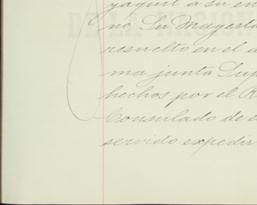 yaquil a su en
no, Su Magesta
resuelto en el a
ma junta Sup
hechos por el R
Consulado de e
servido expedir